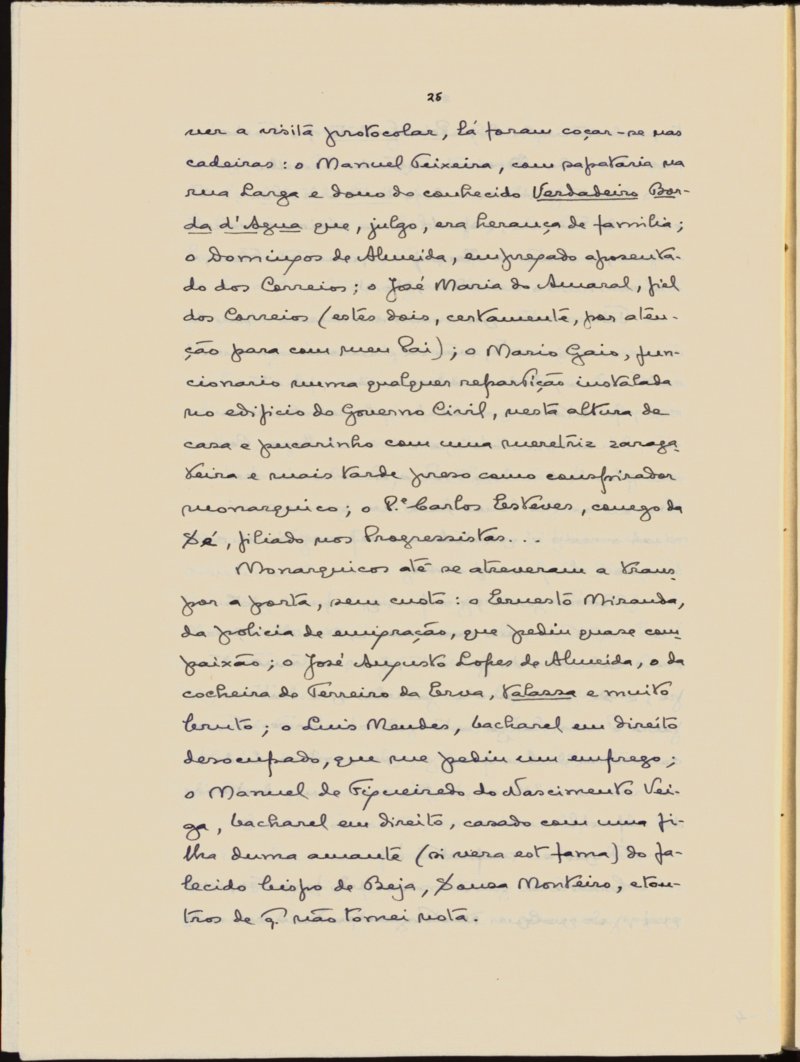 25
ver a visita protocolar, lá foram coçar-se nas
cadeiras: o Manuel Teixeira, com sapataria na
rua Larga e dono do conhecido Verdadeiro Bor-
da d'Agua que, julgo, era herança de familia;
o Domingos de Almeida, empregado aposenta-
do dos Correios; o José Maria do Amaral, fiel
dos Correios (estes dois, certamente, por aten-
ção para com meu Pai); o Mario Gaio, fun-
cionario numa qualquer repartição instalada
no edificio do Governo Civil, nesta altura de
casa e pucarinho com uma meretriz zaraga-
teira e mais tarde preso como conspirador
monarquico; o P.e Carlos Esteves, conego da
Sé, filiado nos Progressistas...
Monarquicos até se atreveram a trans-
por a porta, sem custo: o Ernesto Miranda,
da policia de emigração, que pediu quase com-
paixão; o José Augusto Lopes de Almeida, o da
cocheira do Terreiro da Erva, talassa e muito
bruto; o Luis Mendes, bacharel em direito
desocupado, que me pediu um emprego;
o Manuel de Figueiredo do Nascimento Vei-
ga, bacharel em direito, casado com uma fi-
lha duma amante (si vera est fama) do fa-
lecido bispo de Beja, Sousa Monteiro, e ou-
tros de q. não tomei nota.